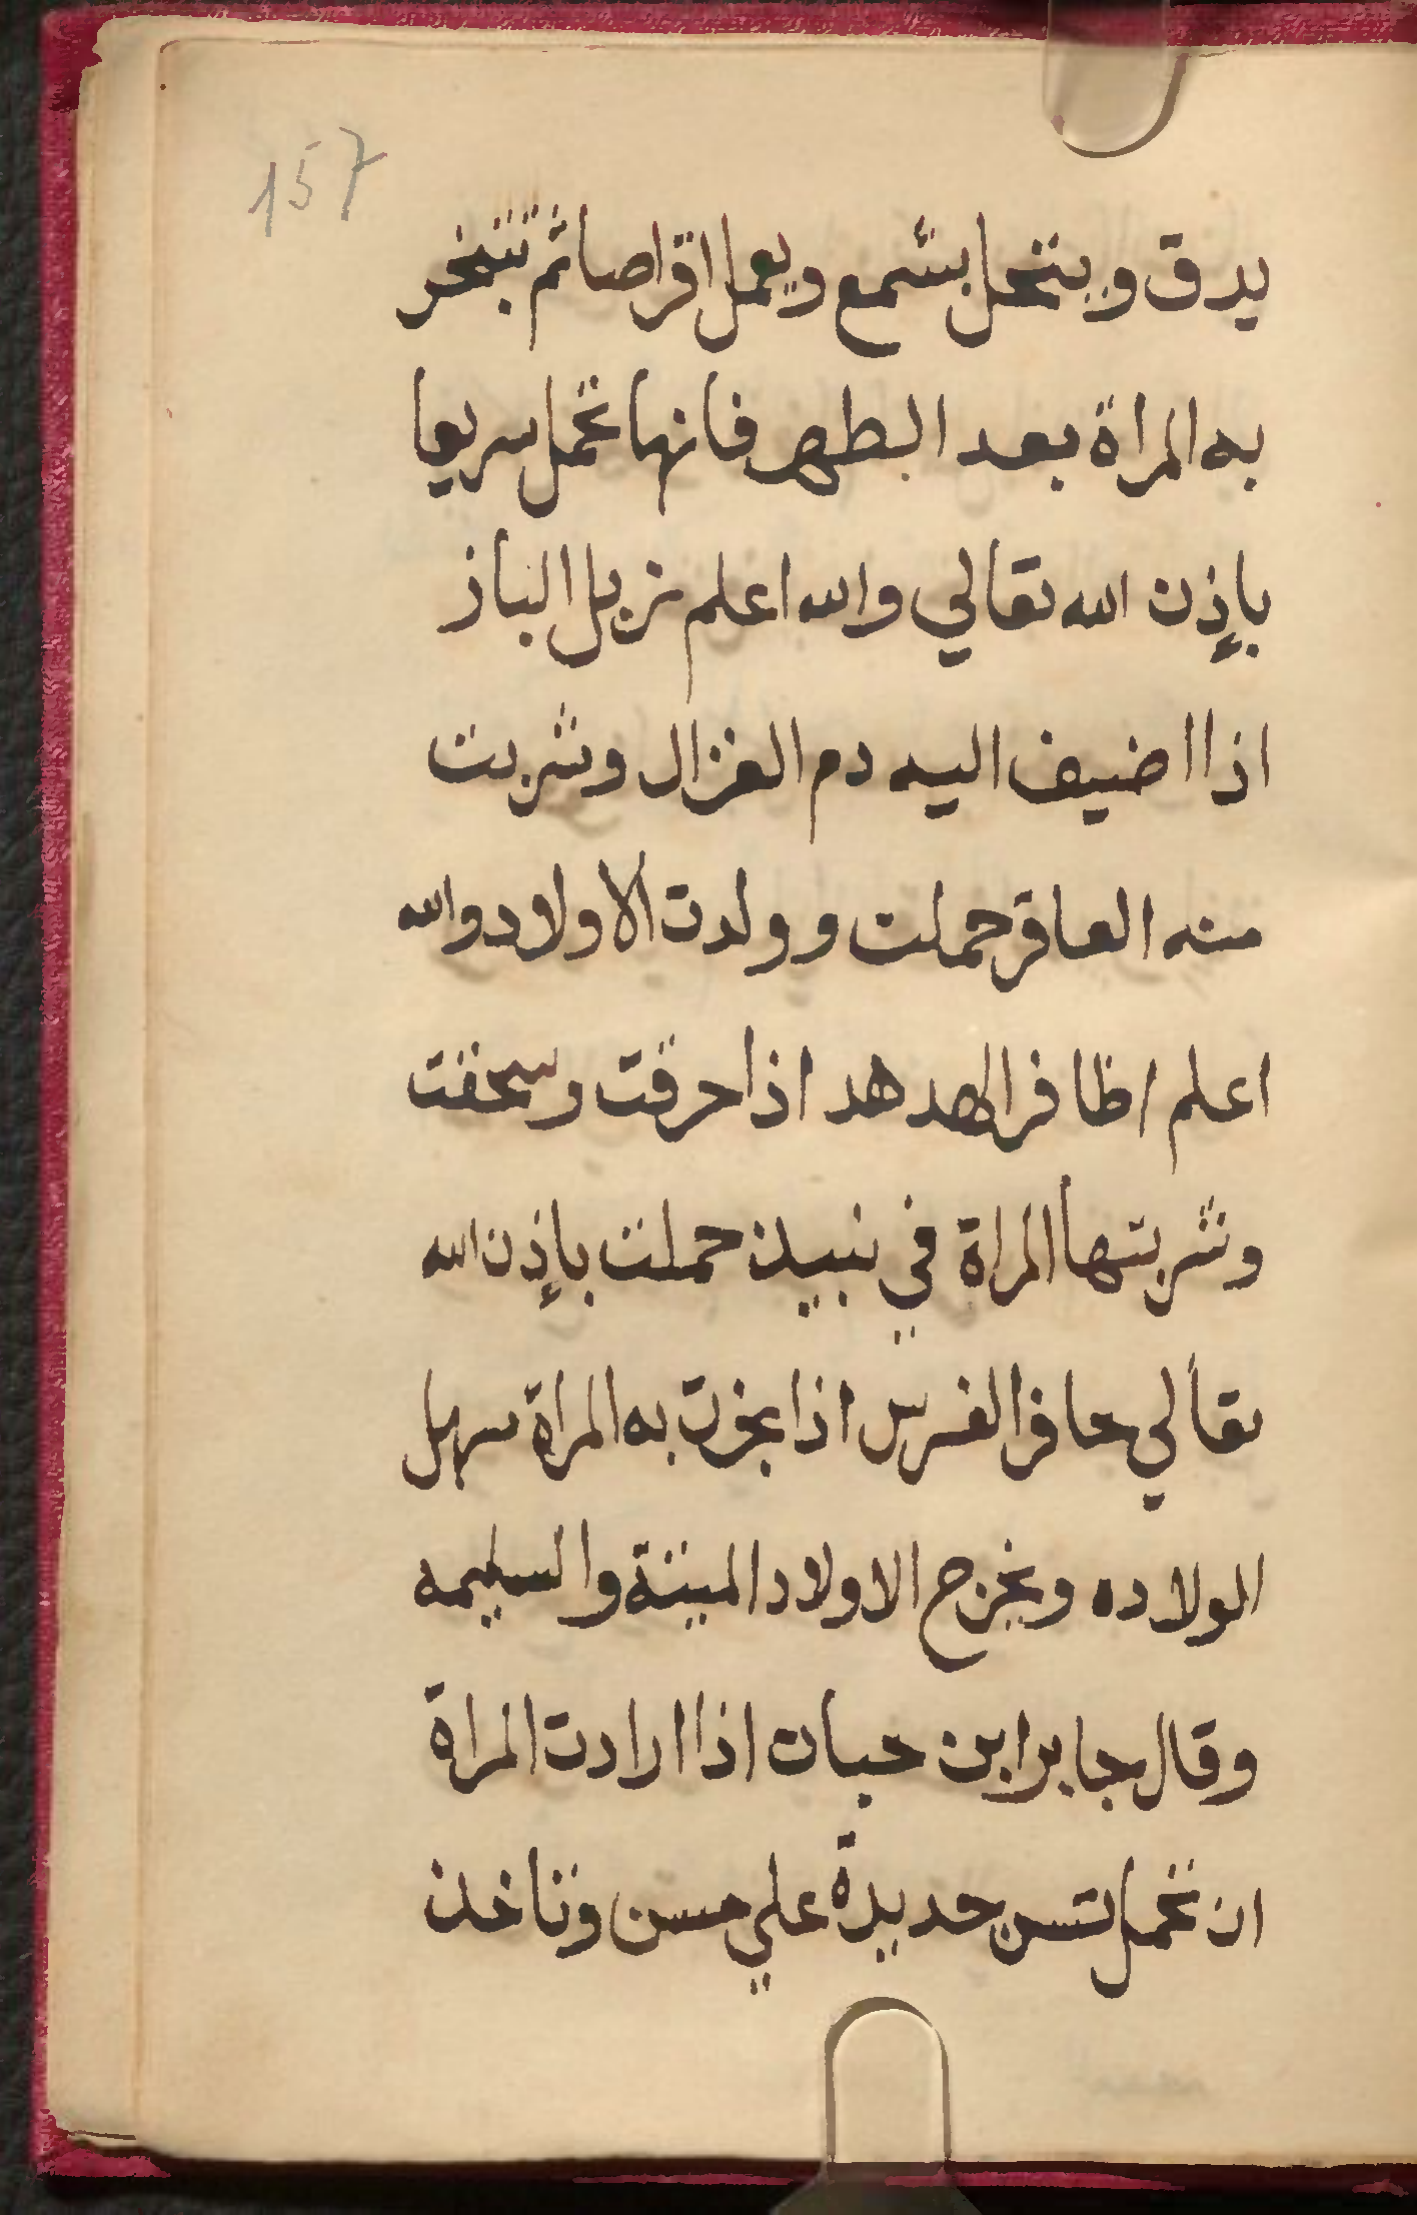 157
يدق وينخل بشمع ويعمل اقراصا ثم تتبخر
به المراة بعد البطهر فانها تحمل سريعا
بإذن الله تعالي والله اعلم زبل الباز
اذا اضيف اليه دم الغزال وشربت
منه العاقر حملت وولدت الاولاد والله
اعلم اظافر الهدهد اذا حرقت وسحقت
وشربتها المراة في نبيذ حملت بإذن الله
تعالي حافر الفرس اذا بخرت به المراة سهل
الولاده ويخرج الاولاد الميتة والسليمه
وقال جابر ابن حيان اذا ارادت المراة
ان تحمل تسن حديدة علي مسن وتاخذ